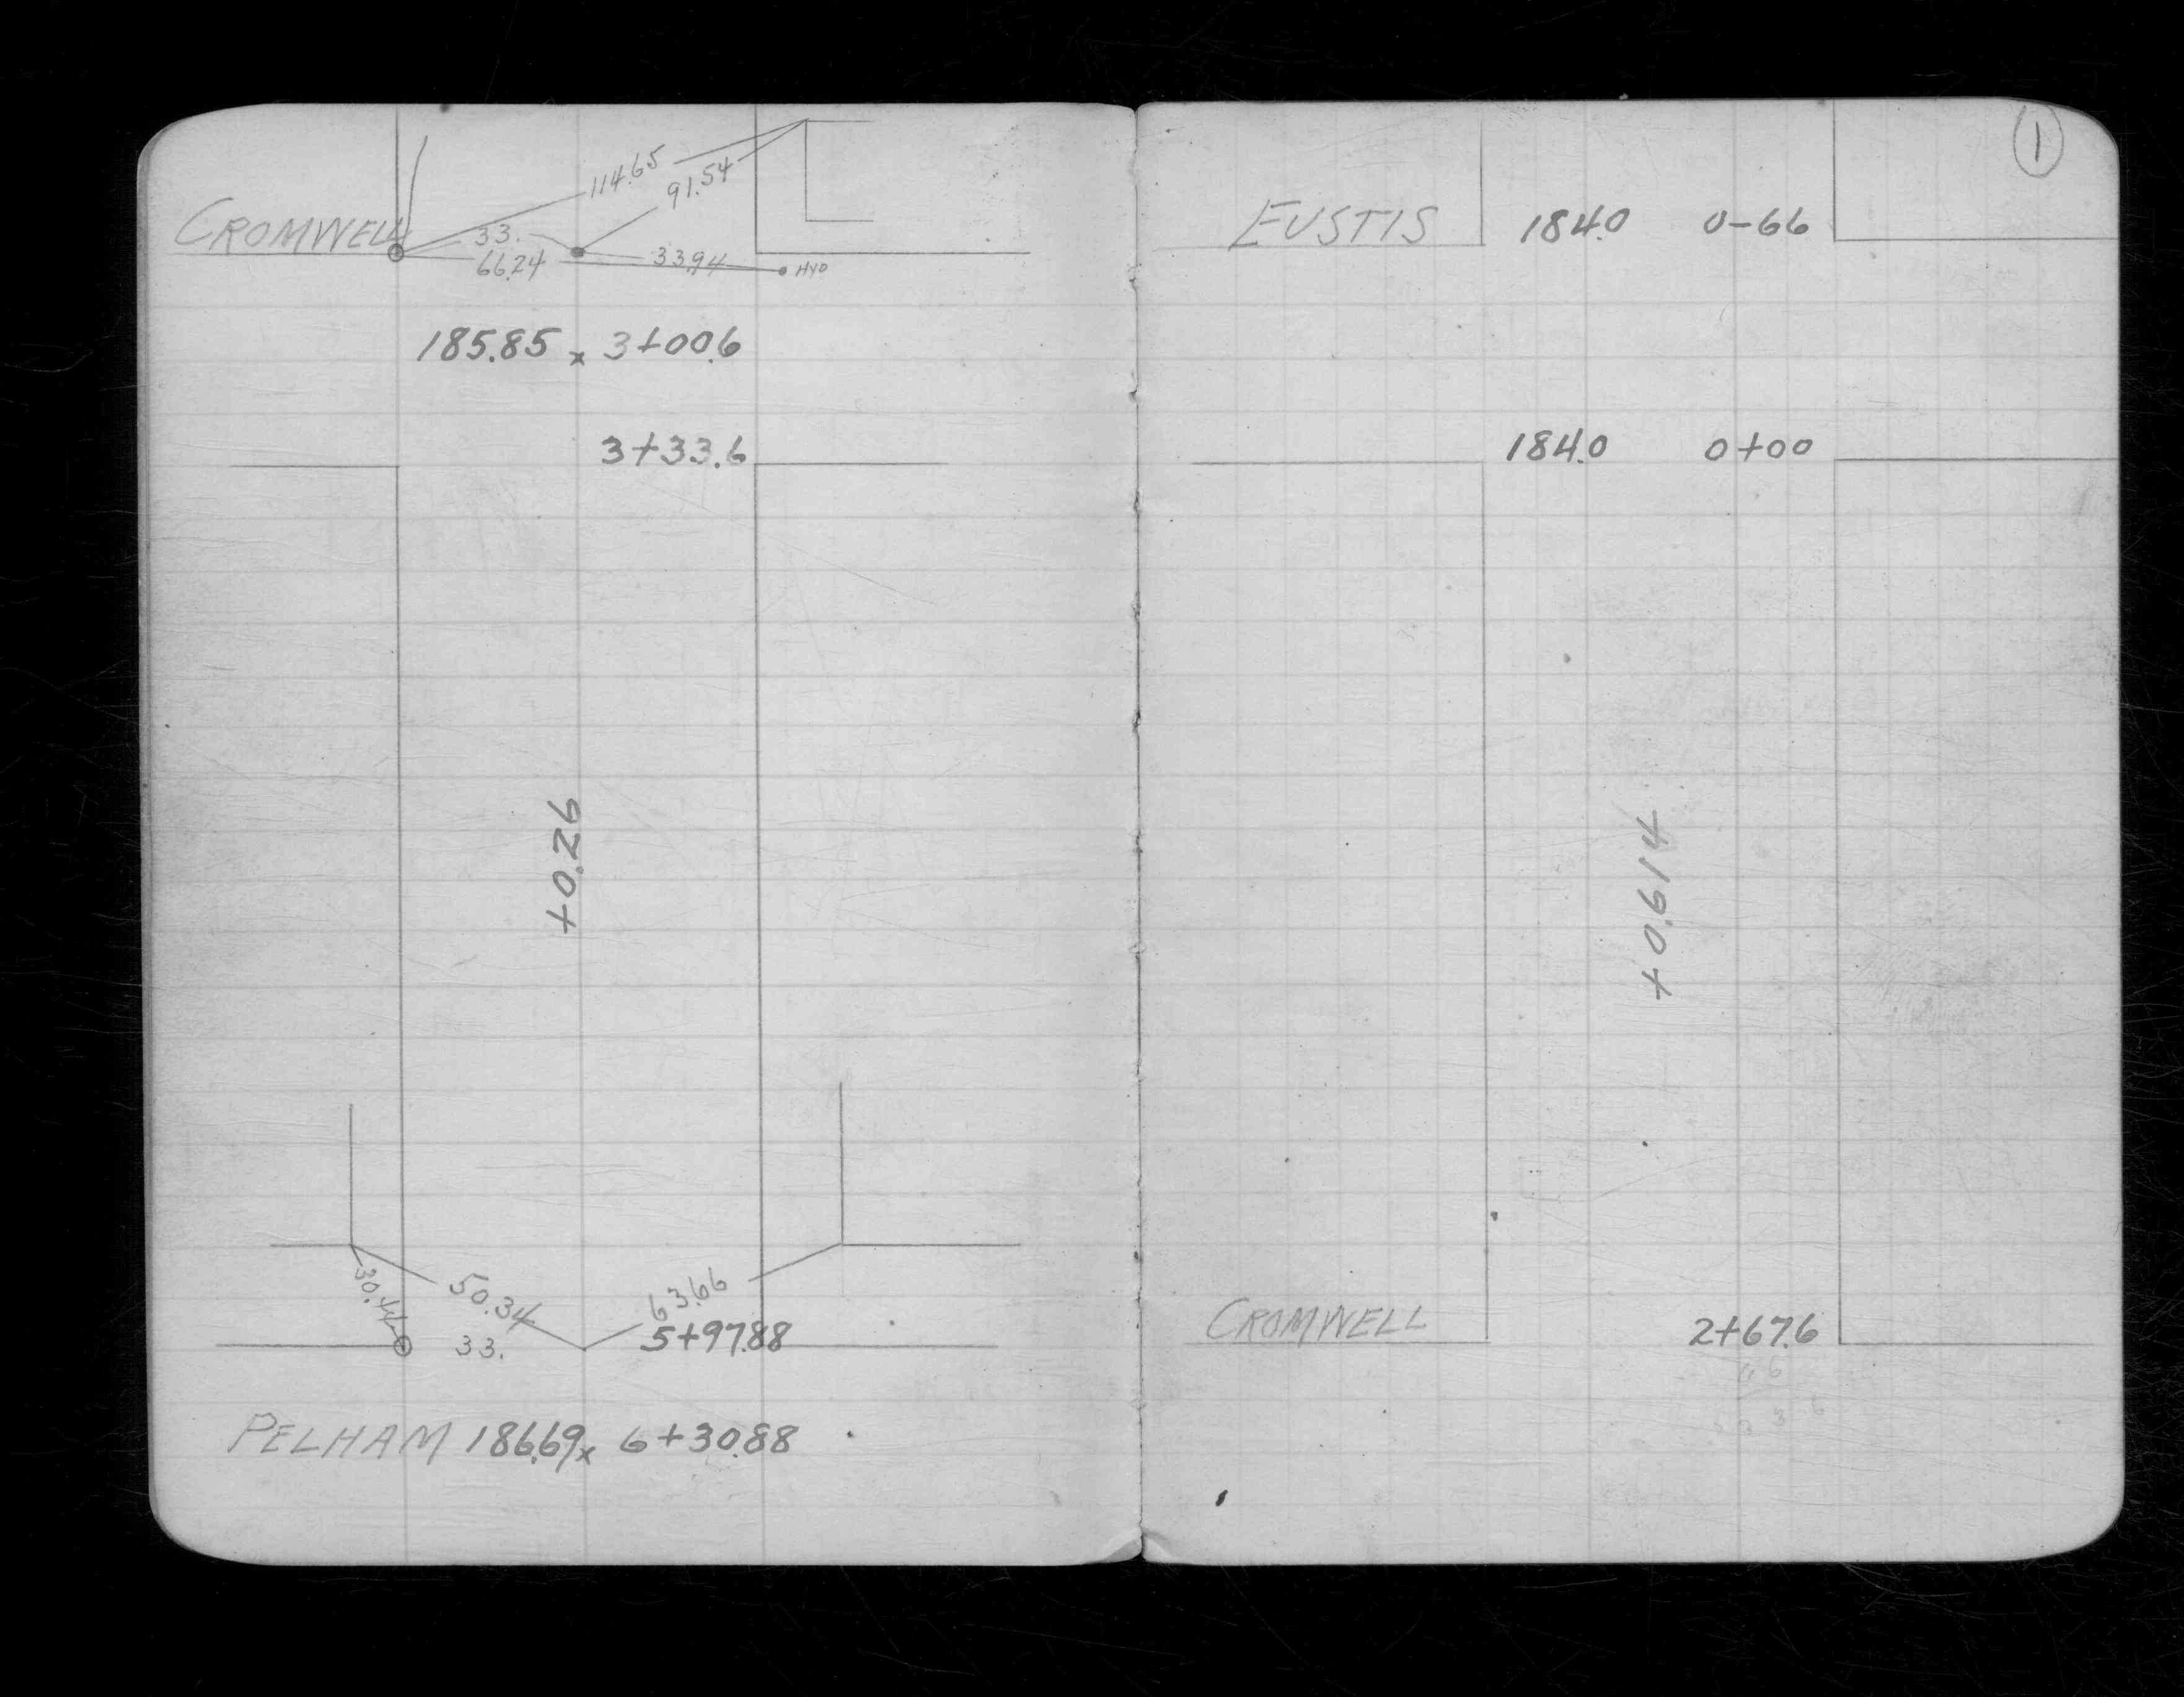 114.65
91.54
CROMWELL
33.
66.24
33.94
HYD
185.85 x 3+00.6
3+33.6
+0.26
30.44
50.34
63.66
33.
5+97.88
PELHAM 186.69 x 6+30.88
1
EUSTIS 184.0 0-66
184.0 0+00
+0.614
CROMWELL 2+67.6